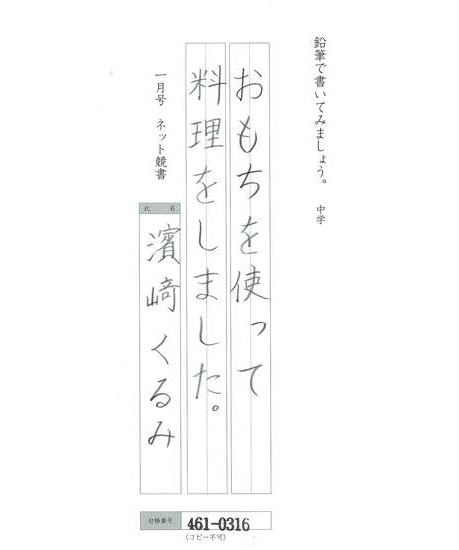 鉛筆で書いてみましょう。 中学
おもちを使って
料理をしました。
一月号 ネット競書
氏名
濵﨑くるみ
台帳番号 461-0316
(コピー不可)